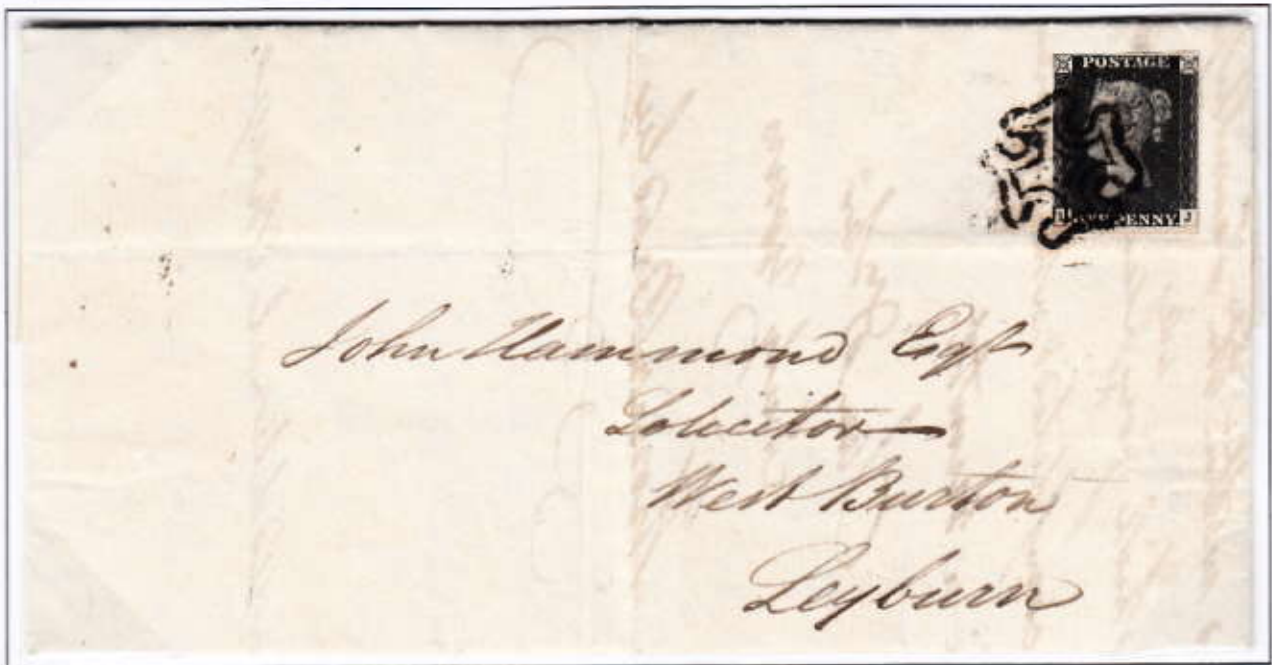 POSTAGE
PENNY
J
John Hammond Esqr
Solicitor
West Burton
Leyburn